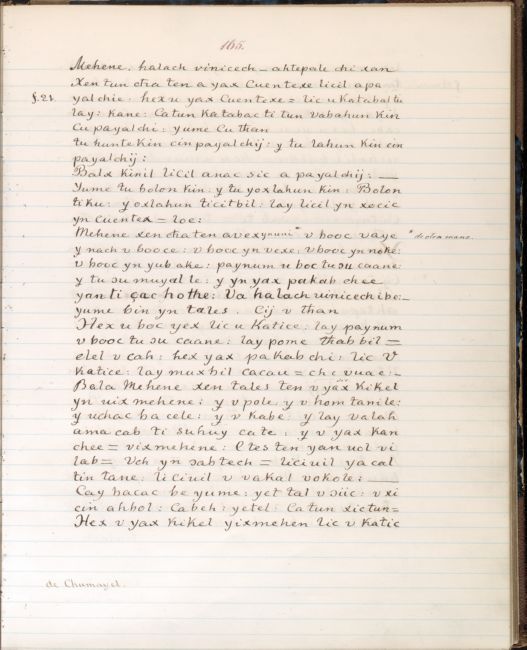 165.
Mehene. halach vinicech_ ahtepale chi xan
Xen tun chaten a yax Cuentexe licil a pa
§.21. yalchie: hex u yax Cuentexe = lic u Katabal tu
lay: Kane: Catun Katabac ti tun vabahun Kin
Cu payalchi: yume Cu than
tu hunte Kin cin payalchij: y tu lahun Kin cin
payalchij:
Balx Kinil licil anac sic a payalchij: __
Yume tu bolon Kin: y tu yoxlahun Kin: Bolon
tiku: y oxlahun ticitbil: lay licil yn xocic
yn Cuentex = loe:
Mehene xen chaten a vex ynuui * v booc vaye * de otra mano.
y nach v booce: v booc yn vexe: v booc yn noke:
v booc yn yub ake: paynum u boc tu su caane
y tu su muyal le: y yn yax pakab chee
yan ti çac hothe: Va halach uinicech i be:_
yume bin yn tales. Cij v than
Hex u boc yex lic u Katice: lay paynum
v booc tu su caane: lay pome thabbil =
elel v cah: hex yax pakab chi: lic V
Katice: lay muxbil cacau = chcvuae:_
Bala Mehene xen tales ten v yäx Kikel
yn uix mehene: y v pole: y v hom tanile:
y uchac ba cele: y v Kabe: y lay valah
uma cab ti suhuy cate: y v yax Kan
chee = vixmehene: Etes ten yan uol vi
lab = Uch yn sabtech = liciuil ya cal
tin tane: liciuil v vakal vokole: __
Cay bacac be yume: yet tal v süic: v xi
cin ahbol: Cabeh: yetel: Catun xictun =
Hex v yax Kikel yixmehen lic v Katic
de Chumayel.